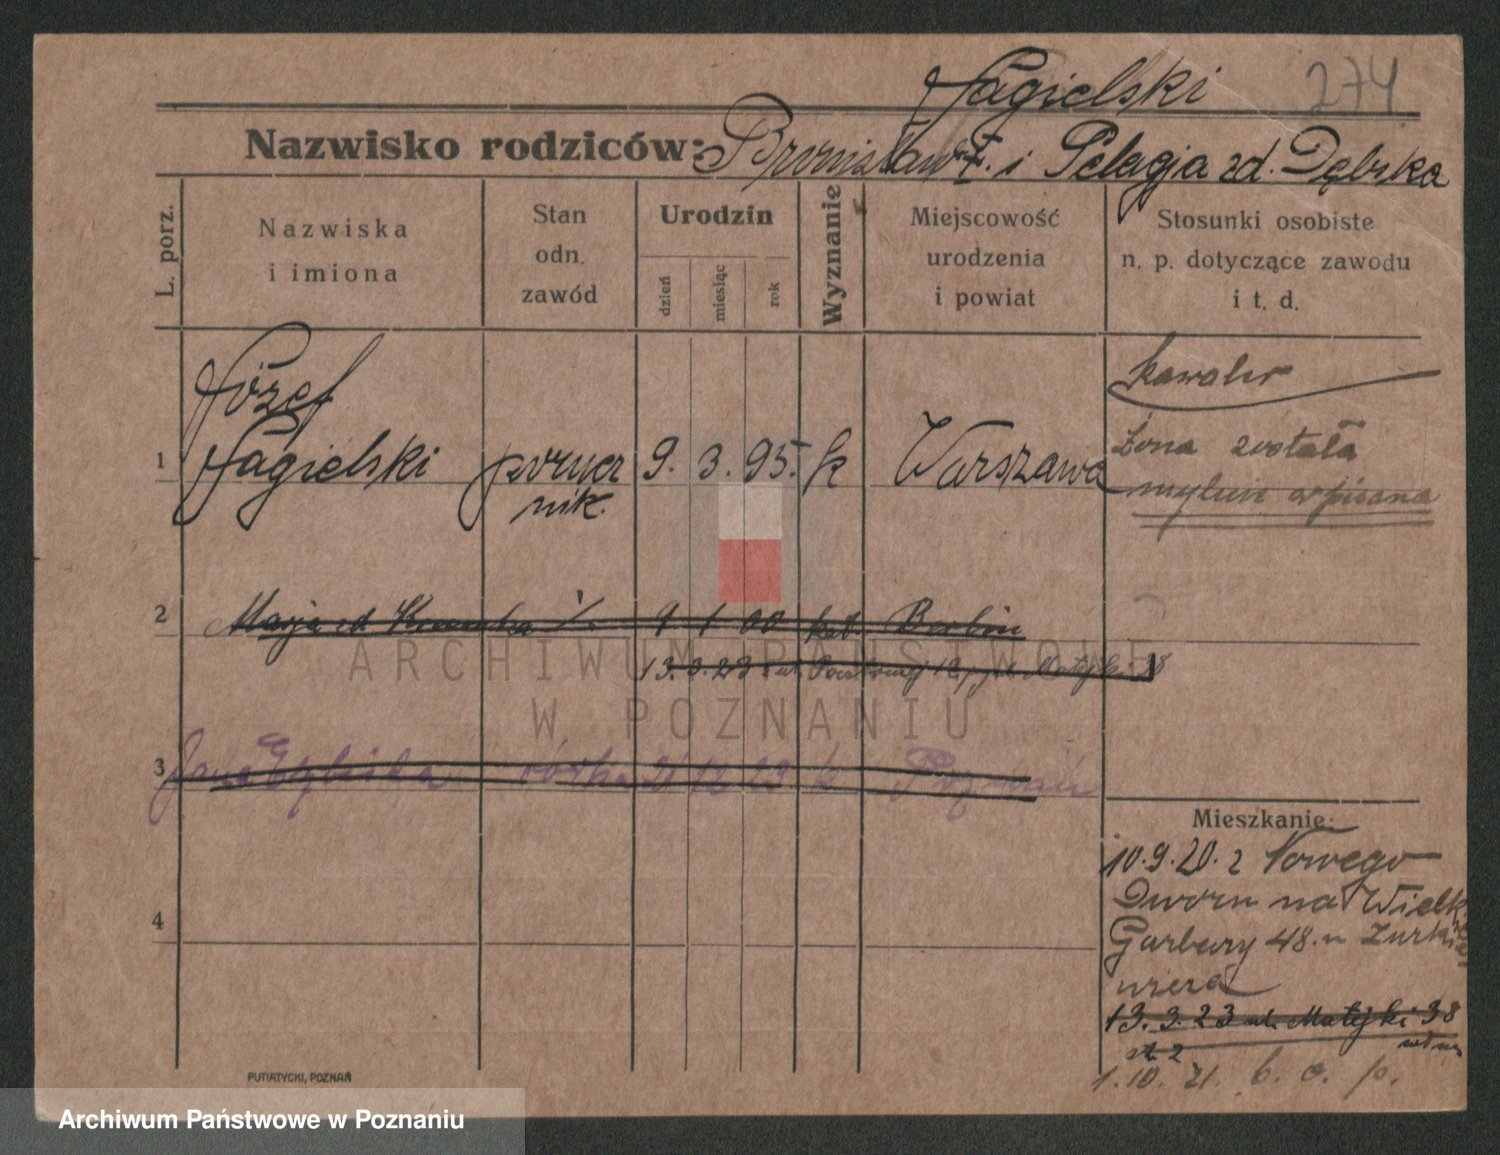 Jagielski 274
Nazwisko rodziców: Bronisław i Pelagja zd. Dębska
L. porz.
Nazwiska
i imiona
Stan
odn.
zawód
Urodzin
dzień
miesiąc
rok
Wyznanie
Miejscowość
urodzenia
i powiat
Stosunki osobiste
n. p. dotyczące zawodu
i t. d.
kawaler
Józef
1 Jagielski 9. 3. 95. k Warszawa
nik.
żona została
mylnie wpisana
2 Marja zd 9 1 00 kat. Berlin
13.3.23 12 Matejki 38
3 córka 12 23 k Poznań
4
Mieszkanie:
10.9.20. z Nowego
Dworu na Wielk
Garbary 48. u
13.3.23 ul. Matejki 38
1.10.21. b. o. p.
PUTIATYCKI, POZNAŃ
ARCHIWUM PAŃSTWOWE
W POZNANIU
Archiwum Państwowe w Poznaniu